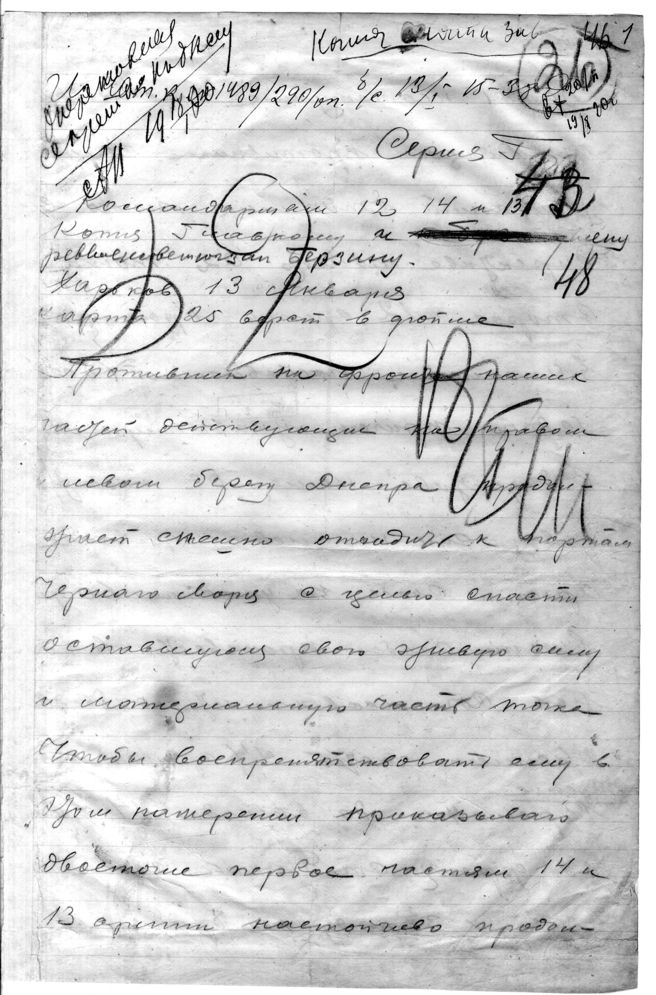 Копия
Оперативная
секретная
1489/290/оп. 13/I 15-3
19/8 20
Серия Г
46 1
43
Командармам 12 14 и 13
Копия Главкому и
реввоенсовета Берзину.
48
Харьков 13 Января
карта 25 верст в дюйме
Противник на фронте наших
частей действующих на правом
и левом берегу Днепра продол-
жает спешно отходить к портам
Чернаго моря с целью спасти
оставшуюся свою живую силу
и материальную часть точка
Чтобы воспрепятствовать ему в
этом намерении приказываю
двоеточие первое частям 14 и
13 армии настойчиво продол-